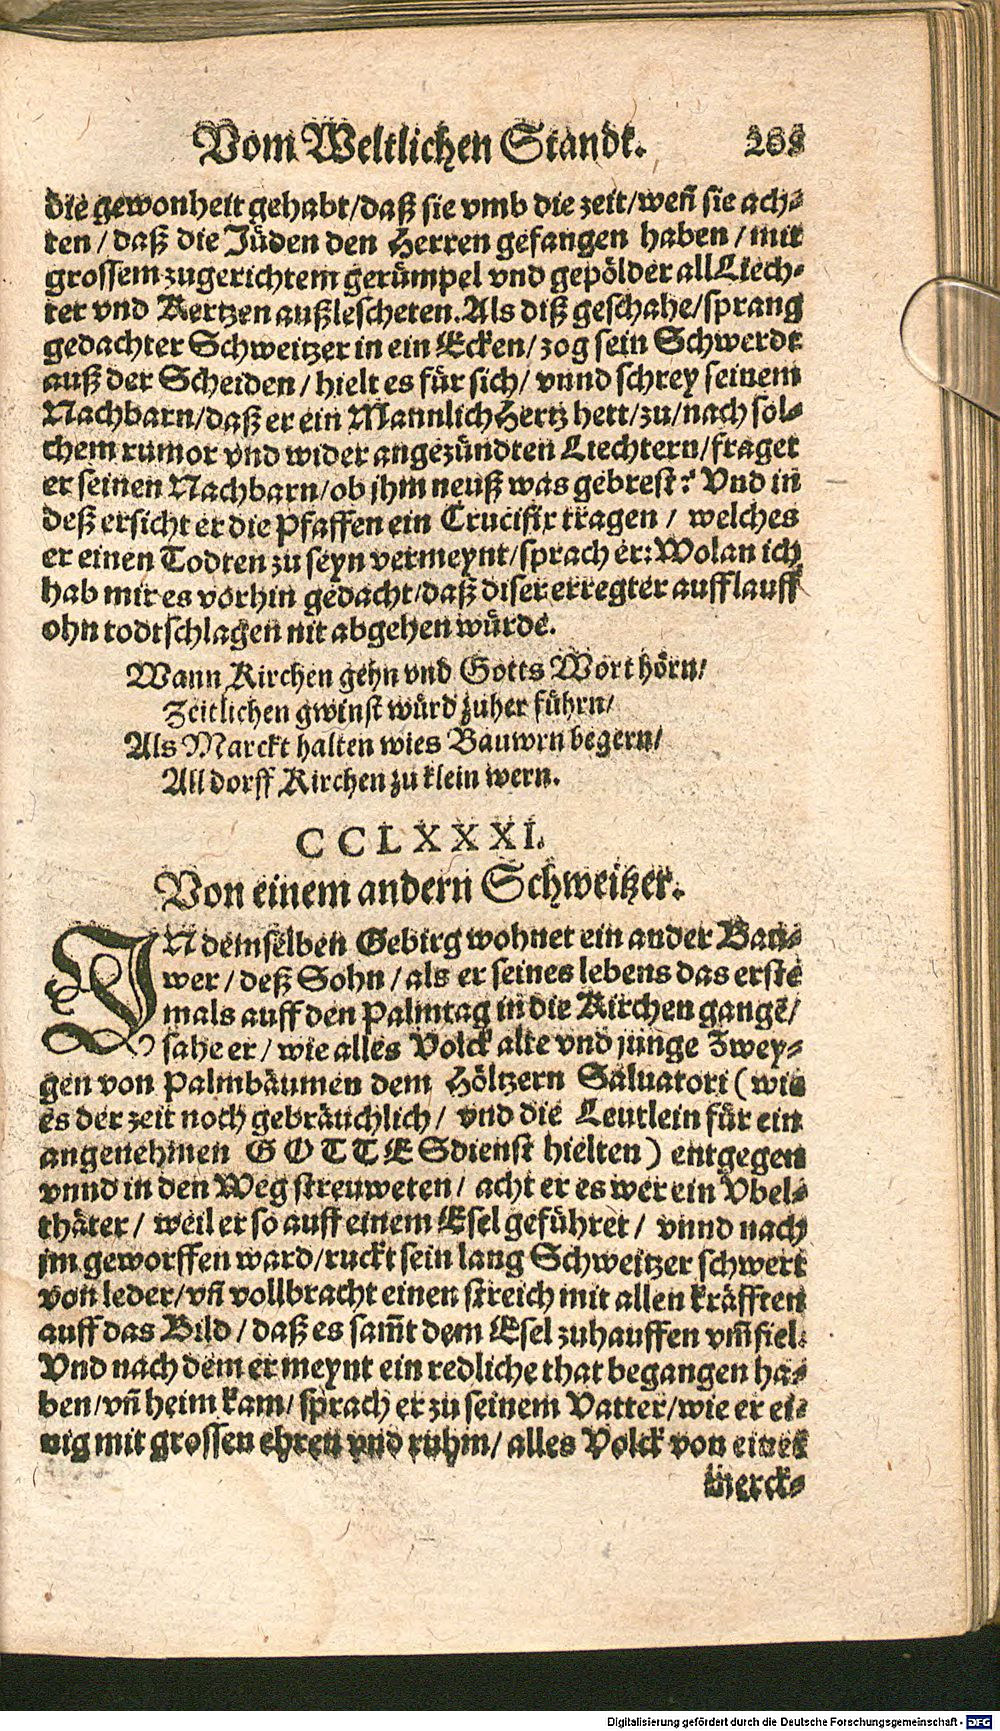 Vom Weltlichen Standt.
die gewonheit gehabt/daß sie vmb die zeit/weñ sie ach⸗
ten / daß die Jüden den Herren gefangen haben / mit
grossem zugerichtem gerümpel vnd gepölder all Liech⸗
ter vnd Kertzen außlescheten. Als diß geschahe/sprang
gedachter Schweitzer in ein Ecken/ zog sein Schwerdt
auß der Scheiden / hielt es für sich/ vnnd schrey seinem
Nachbarn/daß er ein Mannlich Hertz hett/zu/nach sol⸗
chem rumor vnd wider angezündten Liechtern/fraget
er seinen Nachbarn/ob jhm neuß was gebrest? Vnd in
deß ersicht er die Pfaffen ein Crucifix tragen / welches
er einen Todten zu seyn vermeynt/sprach er: Wolan ich
hab mir es vorhin gedacht/daß diser erregter aufflauff
ohn todtschlagen nit abgehen würde.
Wann Kirchen gehn vnd Gotts Wort hörn/
Zeitlichen gwinst würd zuher führn/
Als Marckt halten wies Bauwrn begern/
All dorff Kirchen zu klein wern.
CCLXXXI.
Von einem andern Schweitzer.
IN demselben Gebirg wohnet ein ander Bau⸗
wer / deß Sohn / als er seines lebens das erste
mals auff den Palmtag in die Kirchen gangē/
sahe er / wie alles Volck alte vnd junge Zwey⸗
gen von Palmbäumen dem Höltzern Saluatori (wie
es der zeit noch gebräuchlich / vnd die Leutlein für ein
angenehmen GOTTESdienst hielten) entgegen
vnnd in den Weg streuweten / acht er es wer ein Vbel⸗
thäter / weil er so auff einem Esel geführet / vnnd nach
jm geworffen ward/ruckt sein lang Schweitzer schwert
von leder/vñ vollbracht einen streich mit allen kräfften
auff das Bild / daß es sam̃t dem Esel zuhauffen vm̃fiel.
Vnd nach dem er meynt ein redliche that begangen ha⸗
ben/vñ heim kam/ sprach er zu seinem Vatter/wie er ei⸗
nig mit grossen ehren vnd ruhm/ alles Volck von einer
Merck⸗
Digitalisierung gefördert durch die Deutsche Forschungsgemeinschaft - DFG